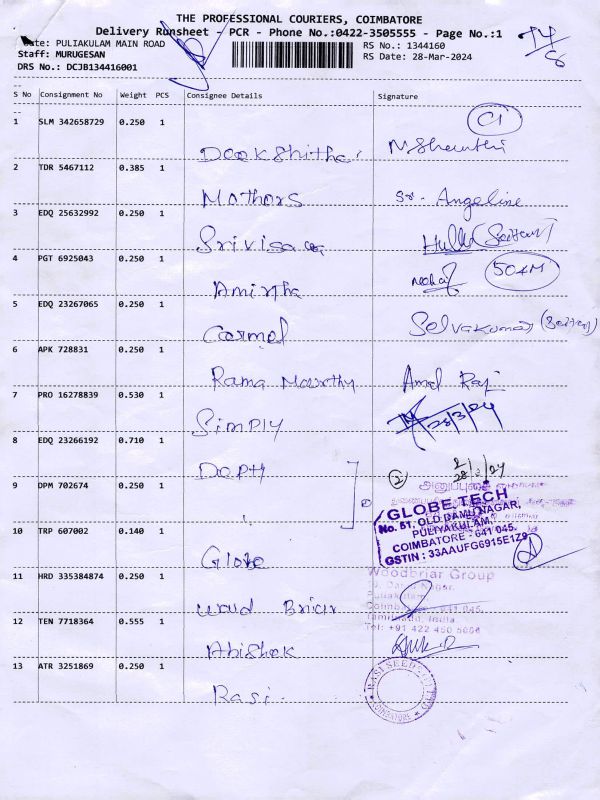 THE PROFESSIONAL COURIERS, COIMBATORE
Delivery Runsheet - PCR - Phone No.:0422-3505555 - Page No.:1
Date: PULIAKULAM MAIN ROAD RS No.: 1344160
Staff: MURUGESAN RS Date: 28-Mar-2024
DRS No.: DCJB134416001
S No Consignment No Weight PCS Consignee Details Signature
C1
1 SLM 342658729 0.250 1
Deekshitha
2 TDR 5467112 0.385 1
Mothors Sr. Angeline
3 EDQ 25632992 0.250 1
4 PGT 6925043 0.250 1
504M
Amirtha
5 EDQ 23267065 0.250 1
Carmel Selvakumar
6 APK 728831 0.250 1
Rama Moorthy Amal Raj
7 PRO 16278839 0.530 1
Simply 28/3/24
8 EDQ 23266192 0.710 1
Depty 2 28/3/24
9 DPM 702674 0.250 1
GLOBE TECH
No. 51, OLD DAMU NAGAR,
PULIYAKULAM,
COIMBATORE - 641 045.
GSTIN : 33AAUFG6915E1Z9
10 TRP 607002 0.140 1
Globe
11 HRD 335384874 0.250 1
Woodbriar Group
Woud Briar
Coimbatore - 641 045.
Tamilnadu, India.
12 TEN 7718364 0.555 1
Abishek
13 ATR 3251869 0.250 1
Rasi
RASI SEEDS
COIMBATORE